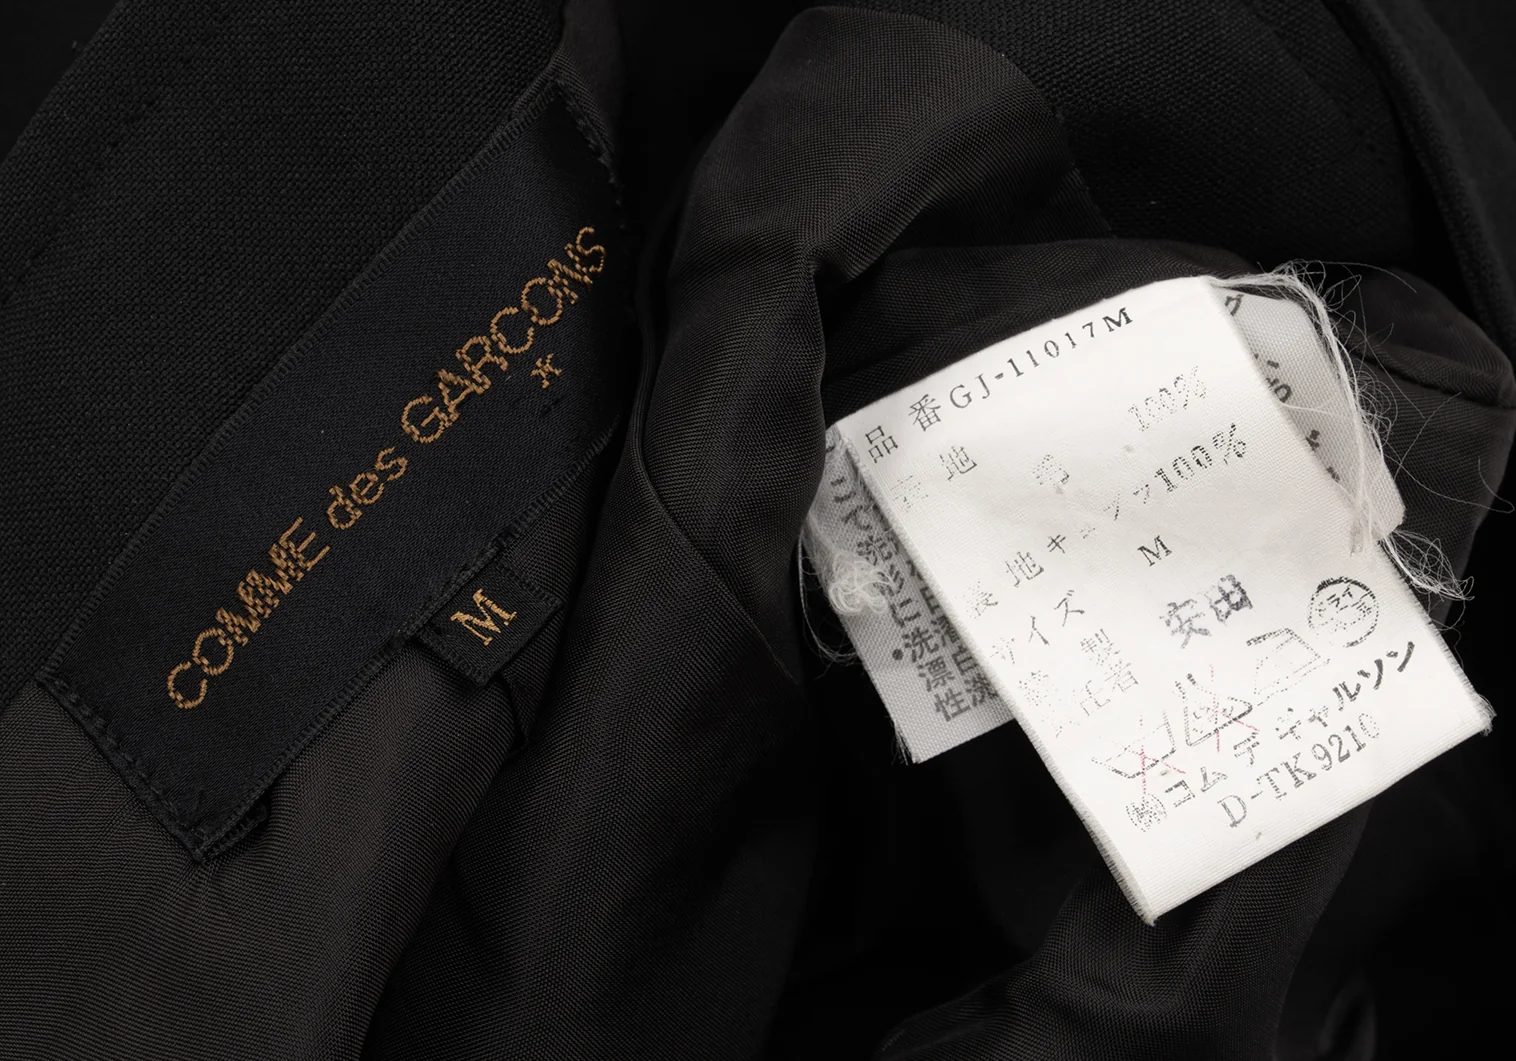 COMME des GARCONS
M
品番GJ-11017M
表地 毛 100%
裏地 キュプラ100%
サイズ M
縫製
責任者 安田
ドライ
㈱コム デ ギャルソン
D-TK9210
・洗
漂白
性洗